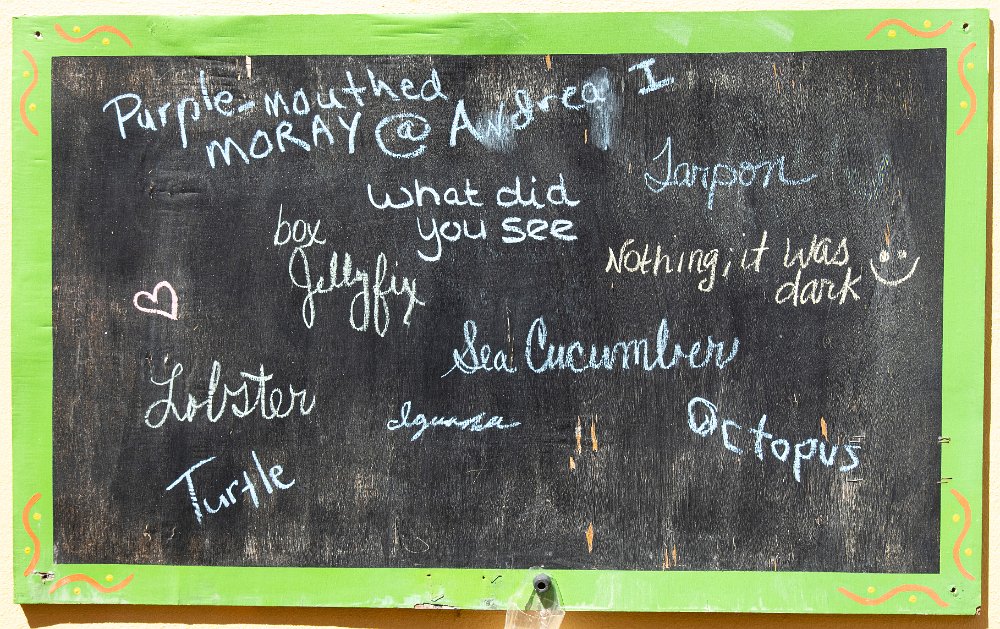 Purple-mouthed
MORAY @ Andrea I
Tarpon
what did
you see
box
Jellyfix
Nothing, it was
dark
Sea Cucumber
Lobster
Iguana
Octopus
Turtle